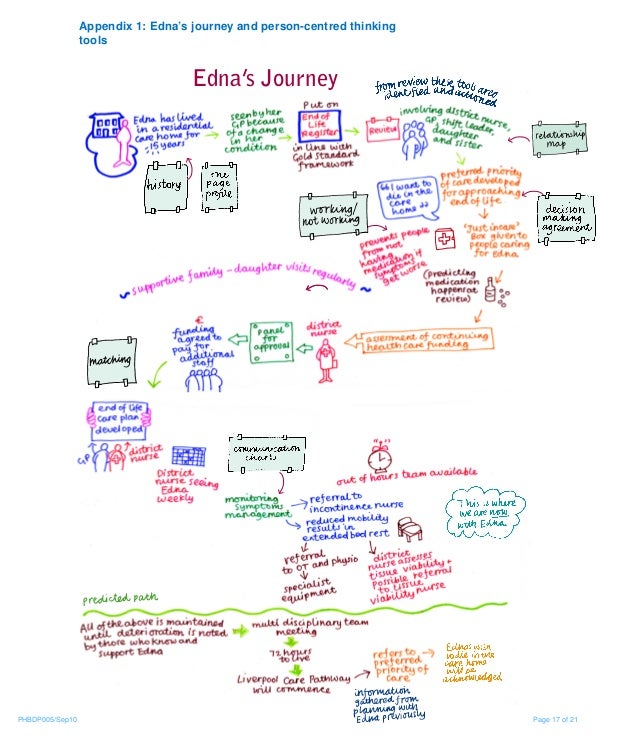 Appendix 1: Edna's journey and person-centred thinking
tools
Edna's Journey
Edna has lived
in a residential
care home for
~15 years
history
one
page
profile
seen by her
GP because
of a change
in her
condition
Put on
End of
Life
Register
in line with
Gold Standard
framework
Review
from review these tools are
identified and actioned
involving district nurse,
GP, shift leader,
daughter
and sister
relationship
map
preferred priority
of care developed
for approaching
end of life
decision
making
agreement
"I want to
die in the
care
home"
working/
not working
'Just incase'
Box given to
people caring
for Edna
prevents people
from not
having
medication if
symptoms
get worse
(Predicting
medication
happens at
review)
~ supportive family – daughter visits regularly ~
assesment of continuing
health care funding
district
nurse
Panel
for
approval
€
funding
agreed to
pay for
additional
staff
matching
end of life
care plan
developed
GP
district
nurse
District
nurse seeing
Edna
weekly
communication
charts
monitoring
symptoms
management
out of hours team available
referral to
incontinence nurse
reduced mobility
results in
extended bed rest
This is where
we are now
with Edna
referral
to OT and physio
specialist
equipment
district
nurse assesses
tissue viability +
possible referral
to tissue
viability nurse
predicted path
All of the above is maintained
until deterioration is noted
by those who know and
support Edna
multi disciplinary team
meeting
72 hours
to live
Liverpool Care Pathway
will commence
refers to
preferred
priority of
care
Ednas wish
to die in the
care home
will be
acknowledged
information
gathered from
planning with
Edna previously
PHBDP005/Sep10
Page 17 of 21